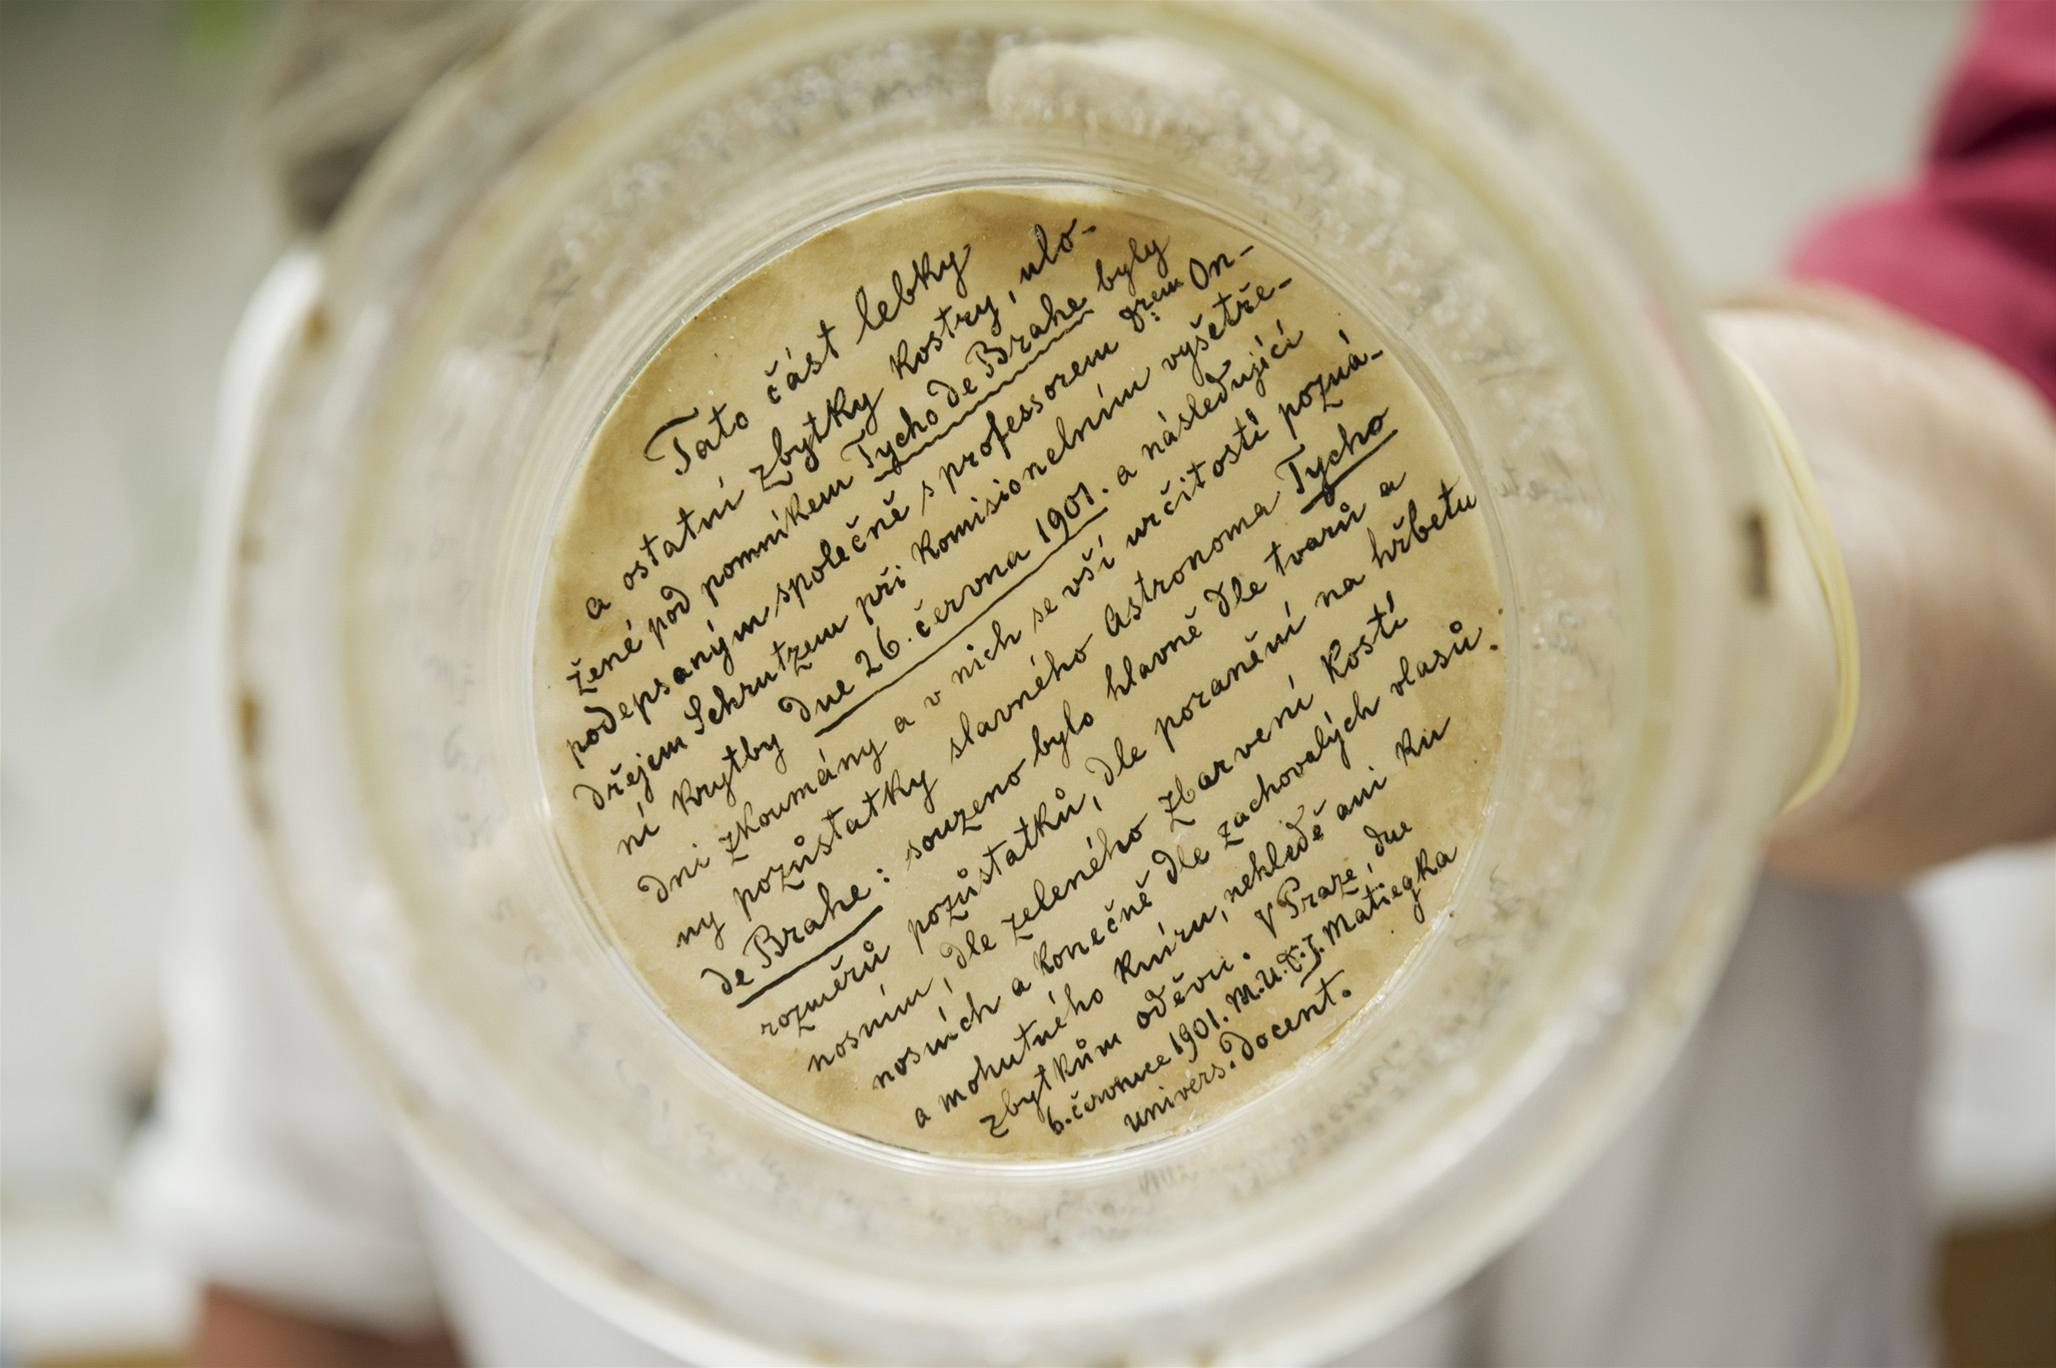 Tato část lebky
a ostatní zbytky kostry, ulo-
žené pod pomníkem Tycho de Brahe byly
podepsaným společně s professorem Drem On-
dřejem Schrutzem při komisionelním vyšetře-
ní krytby dne 26. června 1901. a následující
dni zkoumány a v nich se vší určitostí pozná-
ny pozůstatky slavného Astronoma Tycho
de Brahe: souzeno bylo hlavně dle tvarů a
rozměrů pozůstatků, dle poranění na hřbetu
nosním, dle zeleného zbarvení kostí
nosních a konečně dle zachovalých vlasů.
a mohutného kníru, nehledě ani ku
zbytkům oděvu. V Praze, dne
6. července 1901. M.U.D. J. Matiegka
univers. docent.